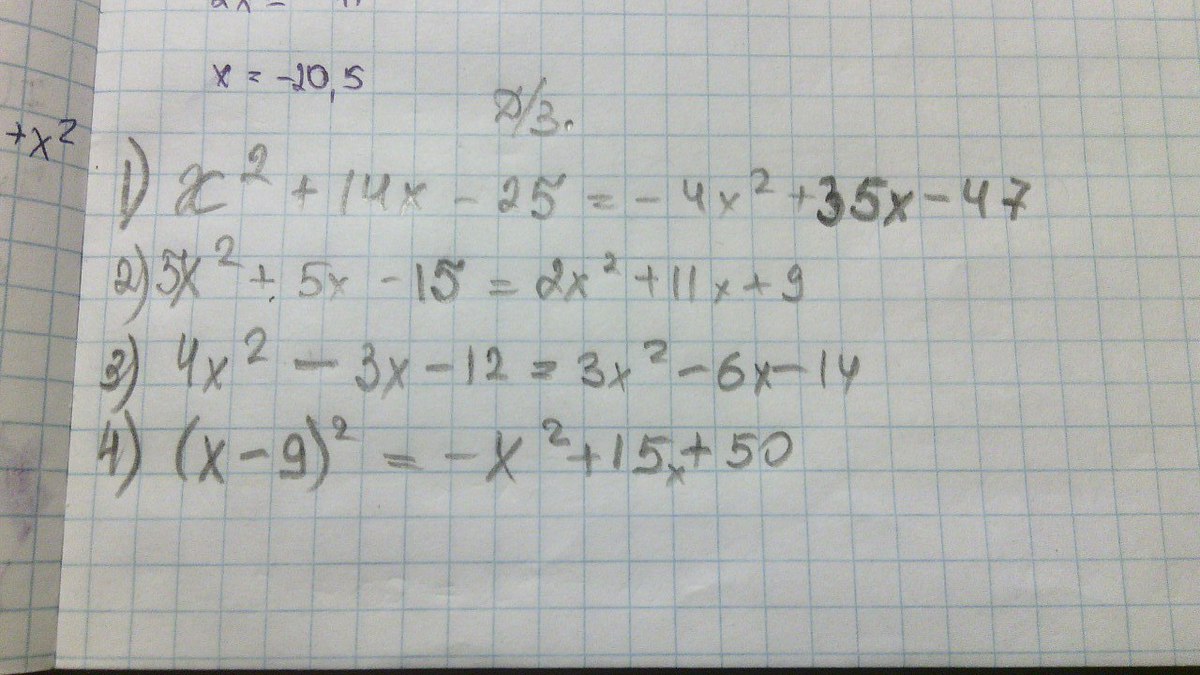 x = -20,5
+x²
Д/З.
1) x² + 14x - 25 = - 4x² + 35x - 47
2) 5x² + 5x - 15 = 2x² + 11x + 9
3) 4x² - 3x - 12 = 3x² - 6x - 14
4) (x - 9)² = - x² + 15x + 50